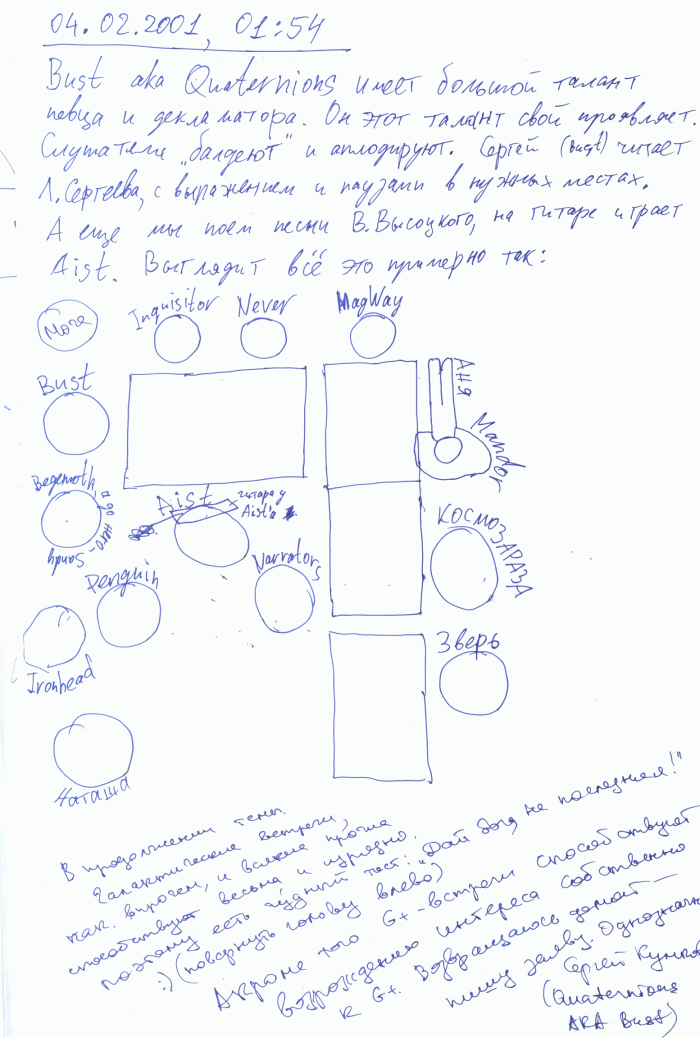 04.02.2001, 01:54
Bust aka Quaternions имеет большой талант
певца и декламатора. Он этот талант свой проявляет.
Слушатели „балдеют" и аплодируют. Сергей (Bust) читает
Л. Сергеева, с выражением и паузами в нужных местах.
А еще мы поем песни В. Высоцкого, на гитаре играет
Aist. Выглядит всё это примерно так:
Inquisitor Never MagWay
Мога
Bust
Аня
Mander
Begemoth,
а до него -
Sandy
Aist
гитара у
Aist'а
Narrators
КОСМОЗАРАЗА
Penguin
Ironhead
Зверь
Наташа
В продолжении темы.
Галактические встречи,
как. впрочем, и всякие прочие
способствуют весьма и изрядно.
Поэтому есть чудный тост: „Дай бог, не последняя!"
:) (повернуть голову влево)
А кроме того G+-встречи способствуют
возрождению интереса собственно
к G+. Возвращаюсь домой —
пишу заявку. Однозначно
Сергей
(Quaternions
AKA Bust)